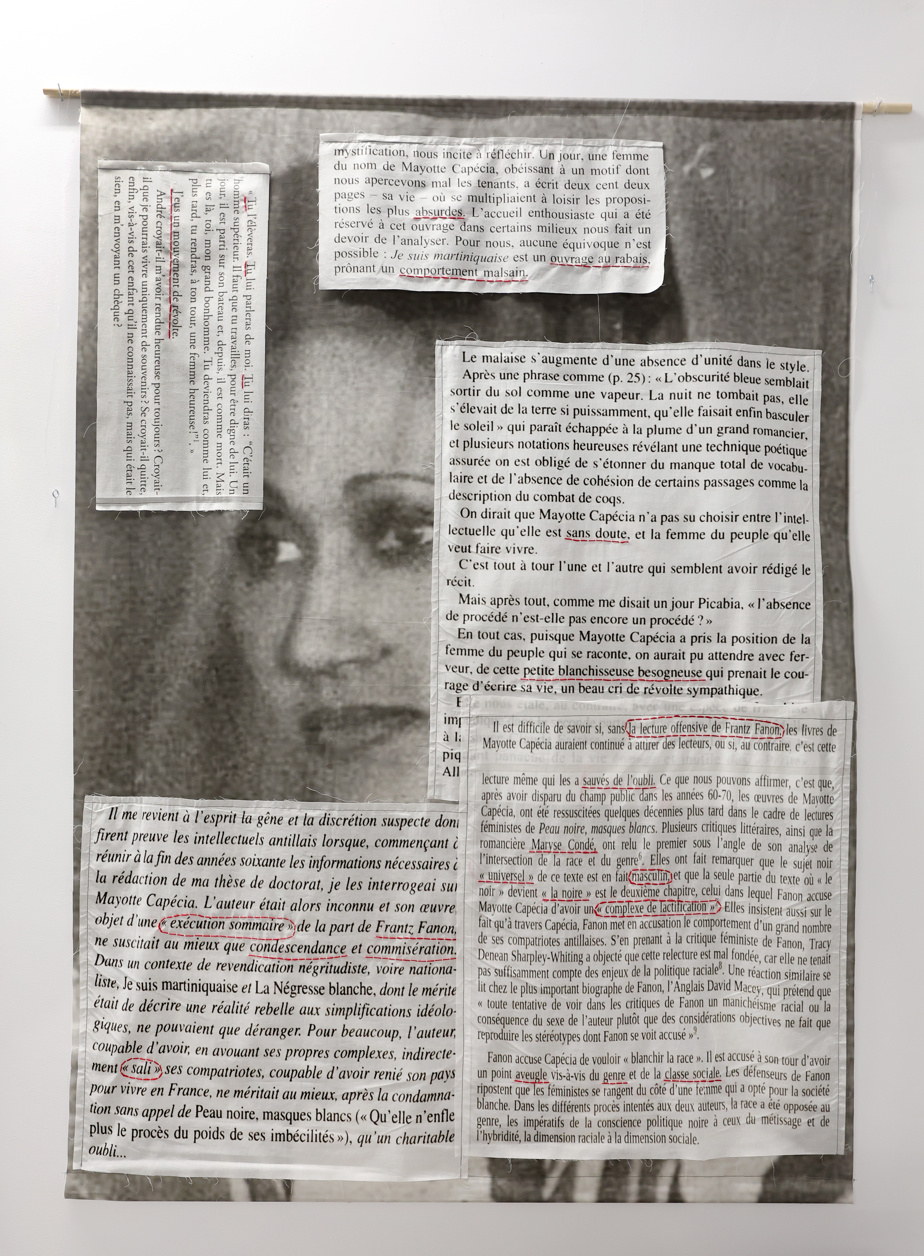 « Tu l'élèveras. Tu lui parleras de moi. Tu lui diras : "C'était un
homme supérieur. Il faut que tu travailles, pour être digne de lui. Un
jour, il est parti sur son bateau et, depuis, il est comme mort. Mais
tu es là, toi, mon grand bonhomme. Tu deviendras comme lui et,
plus tard, tu rendras, à ton tour, une femme heureuse !"¹. »
J'eus un mouvement de révolte.
André croyait-il m'avoir rendue heureuse pour toujours ? Croyait-
il que je pourrais vivre uniquement de souvenirs ? Se croyait-il quitte,
enfin, vis-à-vis de cet enfant qu'il ne connaissait pas, mais qui était le
sien, en m'envoyant un chèque ?
mystification, nous incite à réfléchir. Un jour, une femme
du nom de Mayotte Capécia, obéissant à un motif dont
nous apercevons mal les tenants, a écrit deux cent deux
pages – sa vie – où se multipliaient à loisir les proposi-
tions les plus absurdes. L'accueil enthousiaste qui a été
réservé à cet ouvrage dans certains milieux nous fait un
devoir de l'analyser. Pour nous, aucune équivoque n'est
possible : Je suis martiniquaise est un ouvrage au rabais,
prônant un comportement malsain.
Le malaise s'augmente d'une absence d'unité dans le style.
Après une phrase comme (p. 25) : « L'obscurité bleue semblait
sortir du sol comme une vapeur. La nuit ne tombait pas, elle
s'élevait de la terre si puissamment, qu'elle faisait enfin basculer
le soleil » qui paraît échappée à la plume d'un grand romancier,
et plusieurs notations heureuses révélant une technique poétique
assurée on est obligé de s'étonner du manque total de vocabu-
laire et de l'absence de cohésion de certains passages comme la
description du combat de coqs.
On dirait que Mayotte Capécia n'a pas su choisir entre l'intel-
lectuelle qu'elle est sans doute, et la femme du peuple qu'elle
veut faire vivre.
C'est tout à tour l'une et l'autre qui semblent avoir rédigé le
récit.
Mais après tout, comme me disait un jour Picabia, « l'absence
de procédé n'est-elle pas encore un procédé ? »
En tout cas, puisque Mayotte Capécia a pris la position de la
femme du peuple qui se raconte, on aurait pu attendre avec fer-
veur, de cette petite blanchisseuse besogneuse qui prenait le cou-
rage d'écrire sa vie, un beau cri de révolte sympathique.
E
imp
à la
piq
All
Il est difficile de savoir si, sans la lecture offensive de Frantz Fanon, les livres de
Mayotte Capécia auraient continué à attirer des lecteurs, ou si, au contraire, c'est cette
lecture même qui les a sauvés de l'oubli. Ce que nous pouvons affirmer, c'est que,
après avoir disparu du champ public dans les années 60-70, les œuvres de Mayotte
Capécia, ont été ressuscitées quelques décennies plus tard dans le cadre de lectures
féministes de Peau noire, masques blancs. Plusieurs critiques littéraires, ainsi que la
romancière Maryse Condé, ont relu le premier sous l'angle de son analyse de
l'intersection de la race et du genre⁶. Elles ont fait remarquer que le sujet noir
« universel » de ce texte est en fait masculin, et que la seule partie du texte où « le
noir » devient « la noire » est le deuxième chapitre, celui dans lequel Fanon accuse
Mayotte Capécia d'avoir un « complexe de lactification »⁷. Elles insistent aussi sur le
fait qu'à travers Capécia, Fanon met en accusation le comportement d'un grand nombre
de ses compatriotes antillaises. S'en prenant à la critique féministe de Fanon, Tracy
Denean Sharpley-Whiting a objecté que cette relecture est mal fondée, car elle ne tenait
pas suffisamment compte des enjeux de la politique raciale⁸. Une réaction similaire se
lit chez le plus important biographe de Fanon, l'Anglais David Macey, qui prétend que
« toute tentative de voir dans les critiques de Fanon un manichéisme racial ou la
conséquence du sexe de l'auteur plutôt que des considérations objectives ne fait que
reproduire les stéréotypes dont Fanon se voit accusé »⁹.
Fanon accuse Capécia de vouloir « blanchir la race ». Il est accusé à son tour d'avoir
un point aveugle vis-à-vis du genre et de la classe sociale. Les défenseurs de Fanon
ripostent que les féministes se rangent du côté d'une femme qui a opté pour la société
blanche. Dans les différents procès intentés aux deux auteurs, la race a été opposée au
genre, les impératifs de la conscience politique noire à ceux du métissage et de
l'hybridité, la dimension raciale à la dimension sociale.
Il me revient à l'esprit la gêne et la discrétion suspecte dont
firent preuve les intellectuels antillais lorsque, commençant à
réunir à la fin des années soixante les informations nécessaires à
la rédaction de ma thèse de doctorat, je les interrogeai sur
Mayotte Capécia. L'auteur était alors inconnu et son œuvre,
objet d'une « exécution sommaire » de la part de Frantz Fanon,
ne suscitait au mieux que condescendance et commisération.
Dans un contexte de revendication négritudiste, voire nationa-
liste, Je suis martiniquaise et La Négresse blanche, dont le mérite
était de décrire une réalité rebelle aux simplifications idéolo-
giques, ne pouvaient que déranger. Pour beaucoup, l'auteur,
coupable d'avoir, en avouant ses propres complexes, indirecte-
ment « sali » ses compatriotes, coupable d'avoir renié son pays
pour vivre en France, ne méritait au mieux, après la condamna-
tion sans appel de Peau noire, masques blancs (« Qu'elle n'enfle
plus le procès du poids de ses imbécilités »), qu'un charitable
oubli...